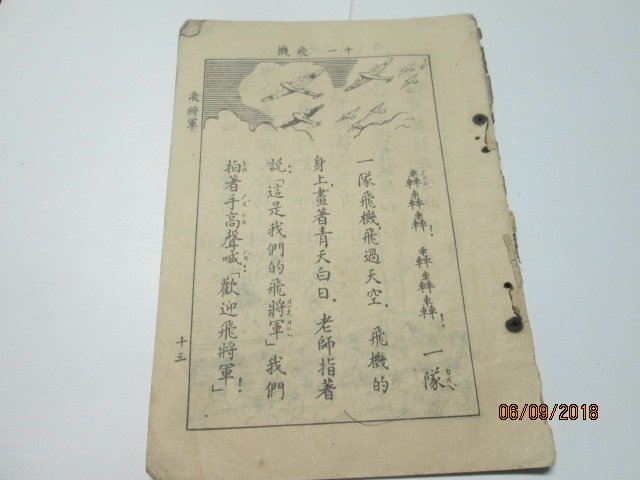 十一 飛機
飛將軍
轟轟轟！轟轟轟！一隊
一隊飛機，飛過天空．飛機的
身上，畫著青天白日．老師指著
說：「這是我們的飛將軍」我們
拍著手高聲喊「歡迎飛將軍！」
十三
06/09/2018